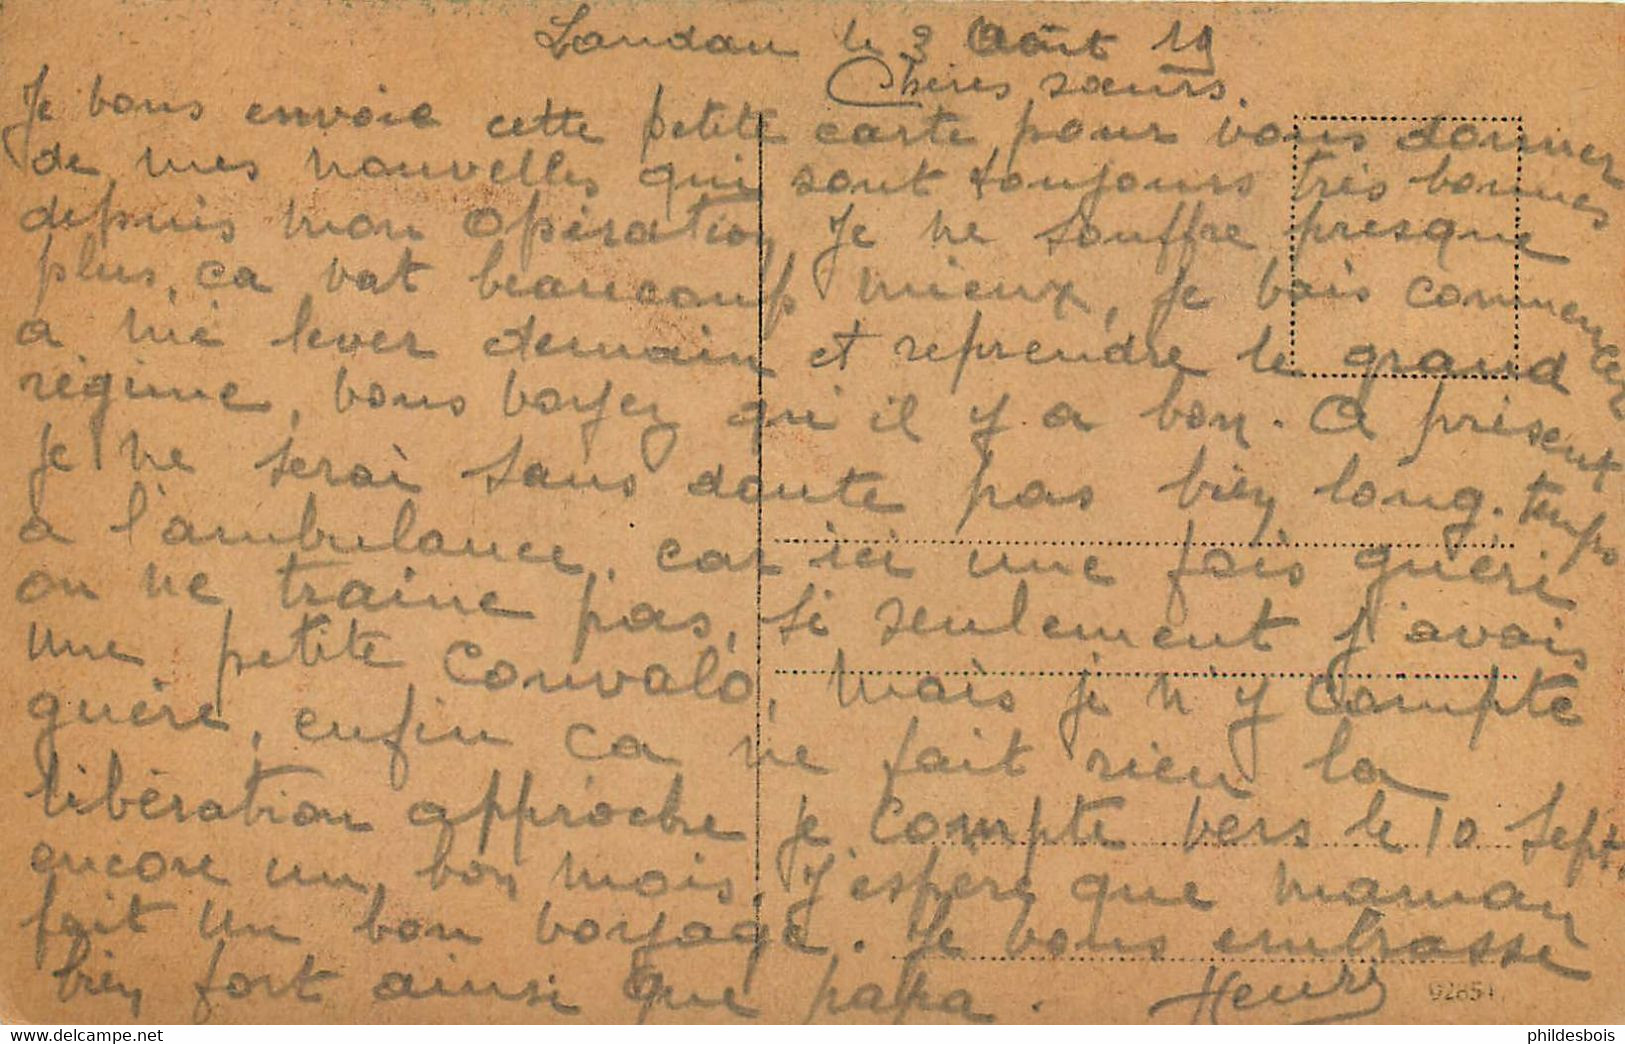 Landau le 3 Août 19
Chères sœurs.
Je vous envoie cette petite carte pour vous donner
de mes nouvelles qui sont toujours très bonnes
depuis mon opération, Je ne souffre presque
plus, ca vat beaucoup mieux, Je vais commencer
a me lever demain et reprendre le grand
régime, vous voyez qu'il y a bon. A présent
Je ne serai sans doute pas bien long. temps
a l'ambulance, car ici une fois guéri
on ne traine pas, si seulement j'avais
une petite convalo, mais je n'y compte
guère, enfin ca ne fait rien la
libération approche je compte vers le 10 Sept,
encore un bon mois, J'espère que maman
fait un bon voyage. Je vous embrasse
bien fort ainsi que papa. Henri
02851
phildesbois